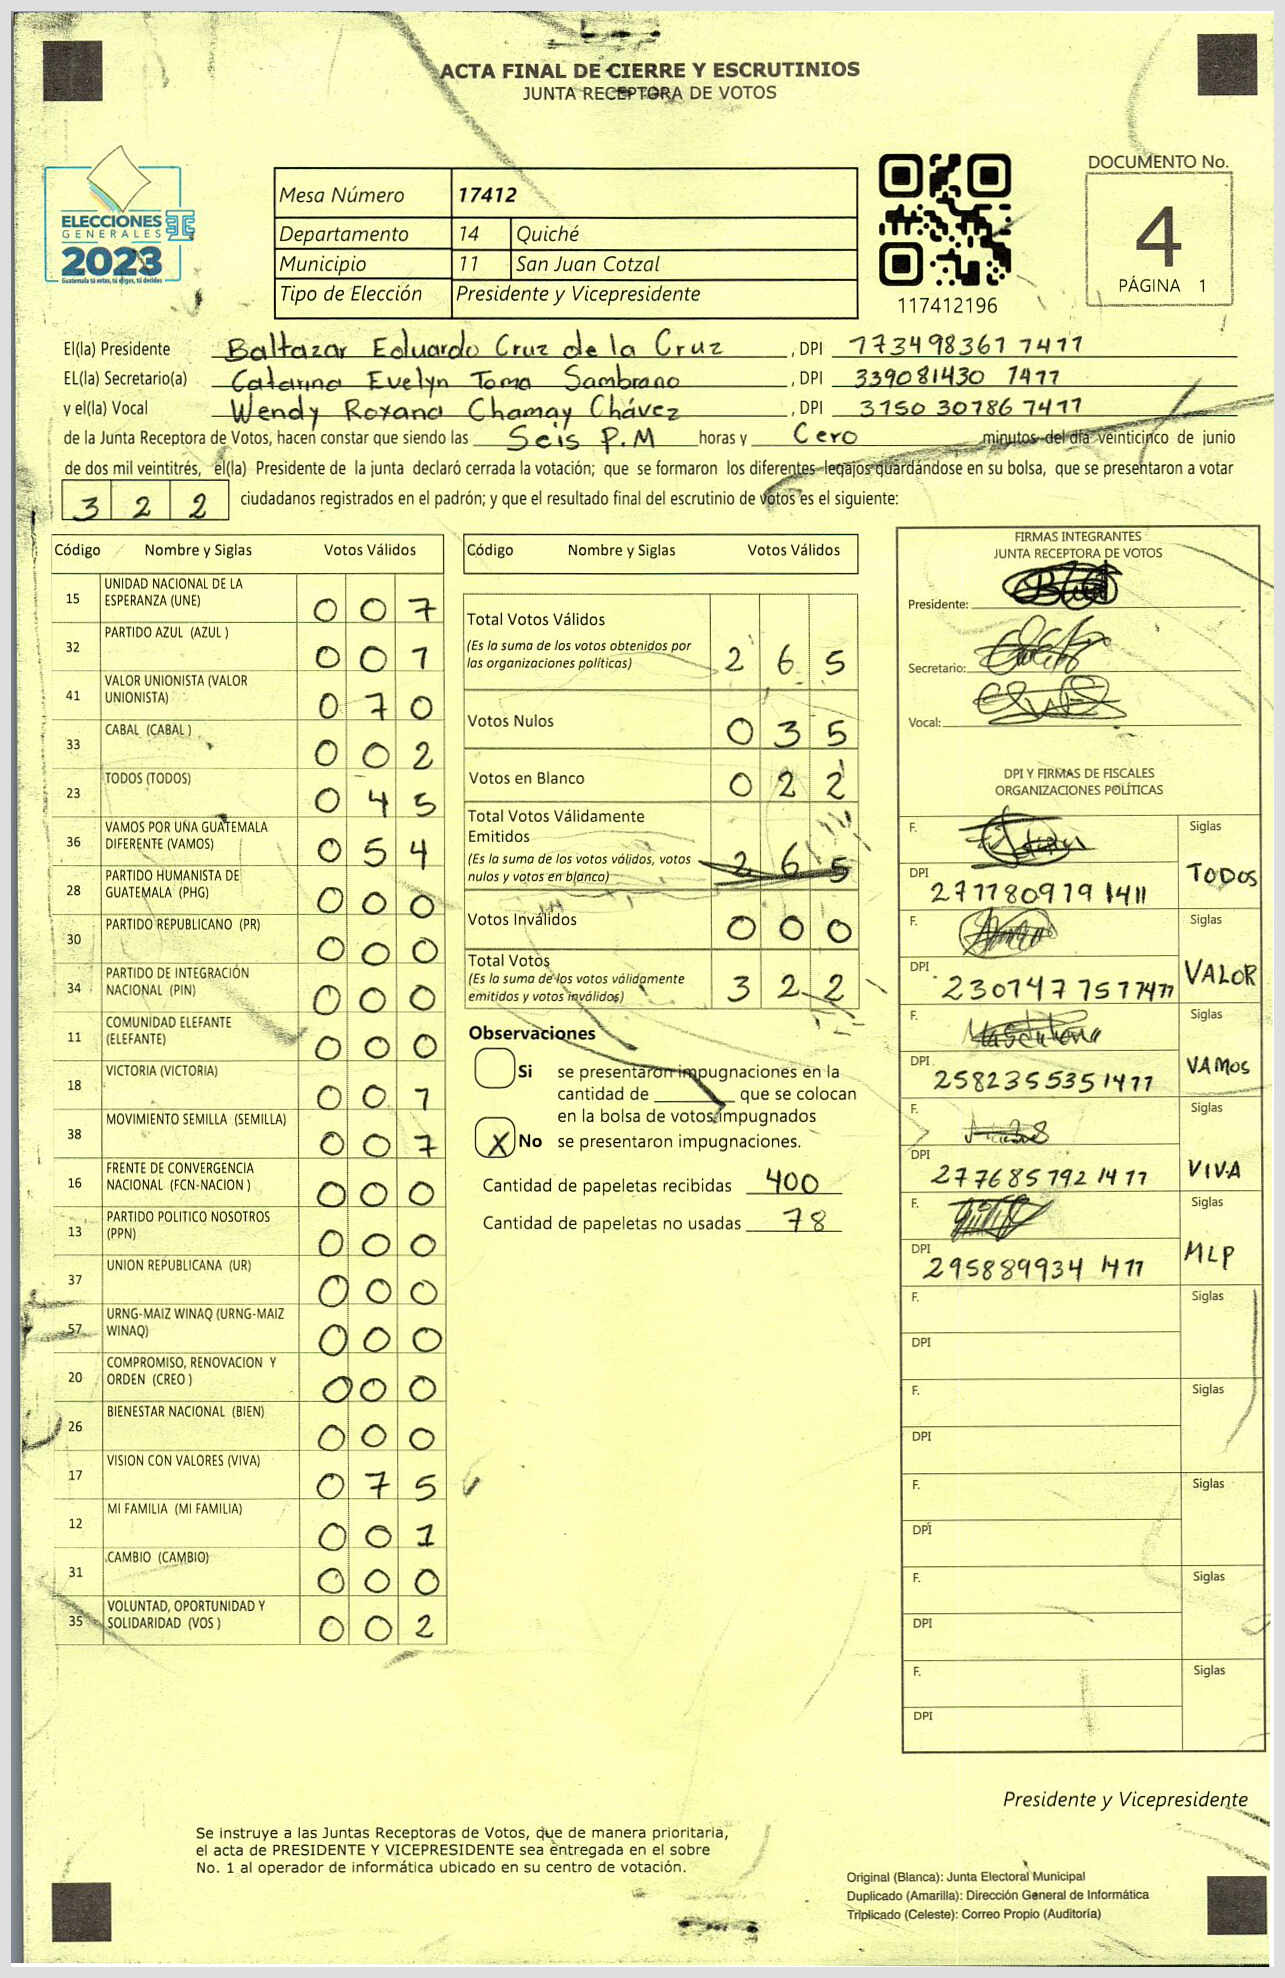 ACTA FINAL DE CIERRE Y ESCRUTINIOS
JUNTA RECEPTORA DE VOTOS
ELECCIONES
GENERALES
2023
Guatemala tú votas, tú eliges, tú decides
Mesa Número 17412
Departamento 14 Quiché
Municipio 11 San Juan Cotzal
Tipo de Elección Presidente y Vicepresidente
117412196
DOCUMENTO No.
4
PÁGINA 1
El(la) Presidente Baltazar Eduardo Cruz de la Cruz , DPI
EL(la) Secretario(a) Catarina Evelyn Toma Sambrano , DPI
y el(la) Vocal Wendy Roxana Chamay Chávez , DPI
de la Junta Receptora de Votos, hacen constar que siendo las Seis P.M horas y Cero minutos del día veinticinco de junio
de dos mil veintitrés, el(la) Presidente de la junta declaró cerrada la votación; que se formaron los diferentes legajos guardándose en su bolsa, que se presentaron a votar
3 2 2 ciudadanos registrados en el padrón; y que el resultado final del escrutinio de votos es el siguiente:
Código Nombre y Siglas Votos Válidos
15 UNIDAD NACIONAL DE LA
ESPERANZA (UNE) 0 0 7
32 PARTIDO AZUL (AZUL ) 0 0 1
41 VALOR UNIONISTA (VALOR
UNIONISTA) 0 7 0
33 CABAL (CABAL ) 0 0 2
23 TODOS (TODOS) 0 4 5
36 VAMOS POR UNA GUATEMALA
DIFERENTE (VAMOS) 0 5 4
28 PARTIDO HUMANISTA DE
GUATEMALA (PHG) 0 0 0
30 PARTIDO REPUBLICANO (PR) 0 0 0
34 PARTIDO DE INTEGRACIÓN
NACIONAL (PIN) 0 0 0
11 COMUNIDAD ELEFANTE
(ELEFANTE) 0 0 0
18 VICTORIA (VICTORIA) 0 0 1
38 MOVIMIENTO SEMILLA (SEMILLA) 0 0 7
16 FRENTE DE CONVERGENCIA
NACIONAL (FCN-NACION ) 0 0 0
13 PARTIDO POLITICO NOSOTROS
(PPN) 0 0 0
37 UNION REPUBLICANA (UR) 0 0 0
57 URNG-MAIZ WINAQ (URNG-MAIZ
WINAQ) 0 0 0
20 COMPROMISO, RENOVACION Y
ORDEN (CREO ) 0 0 0
26 BIENESTAR NACIONAL (BIEN) 0 0 0
17 VISION CON VALORES (VIVA) 0 7 5
12 MI FAMILIA (MI FAMILIA) 0 0 1
31 CAMBIO (CAMBIO) 0 0 0
35 VOLUNTAD, OPORTUNIDAD Y
SOLIDARIDAD (VOS ) 0 0 2
Código Nombre y Siglas Votos Válidos
Total Votos Válidos
(Es la suma de los votos obtenidos por
las organizaciones políticas) 2 6 5
Votos Nulos 0 3 5
Votos en Blanco 0 2 2
Total Votos Válidamente
Emitidos
(Es la suma de los votos válidos, votos
nulos y votos en blanco) 2 6 5
Votos Inválidos 0 0 0
Total Votos
(Es la suma de los votos válidamente
emitidos y votos inválidos) 3 2 2
Observaciones
Si se presentaron impugnaciones en la
cantidad de que se colocan
en la bolsa de votos impugnados
X No se presentaron impugnaciones.
Cantidad de papeletas recibidas 400
Cantidad de papeletas no usadas 78
FIRMAS INTEGRANTES
JUNTA RECEPTORA DE VOTOS
Presidente:
Secretario:
Vocal:
DPI Y FIRMAS DE FISCALES
ORGANIZACIONES POLÍTICAS
F. Siglas
DPI TODOS
F. Siglas
DPI VALOR
F. Siglas
DPI VAMOS
F. Siglas
DPI VIVA
F. Siglas
DPI MLP
F. Siglas
DPI
F. Siglas
DPI
F. Siglas
DPI
F. Siglas
DPI
F. Siglas
DPI
Presidente y Vicepresidente
Se instruye a las Juntas Receptoras de Votos, que de manera prioritaria,
el acta de PRESIDENTE Y VICEPRESIDENTE sea entregada en el sobre
No. 1 al operador de informática ubicado en su centro de votación.
Original (Blanca): Junta Electoral Municipal
Duplicado (Amarilla): Dirección General de Informática
Triplicado (Celeste): Correo Propio (Auditoría)